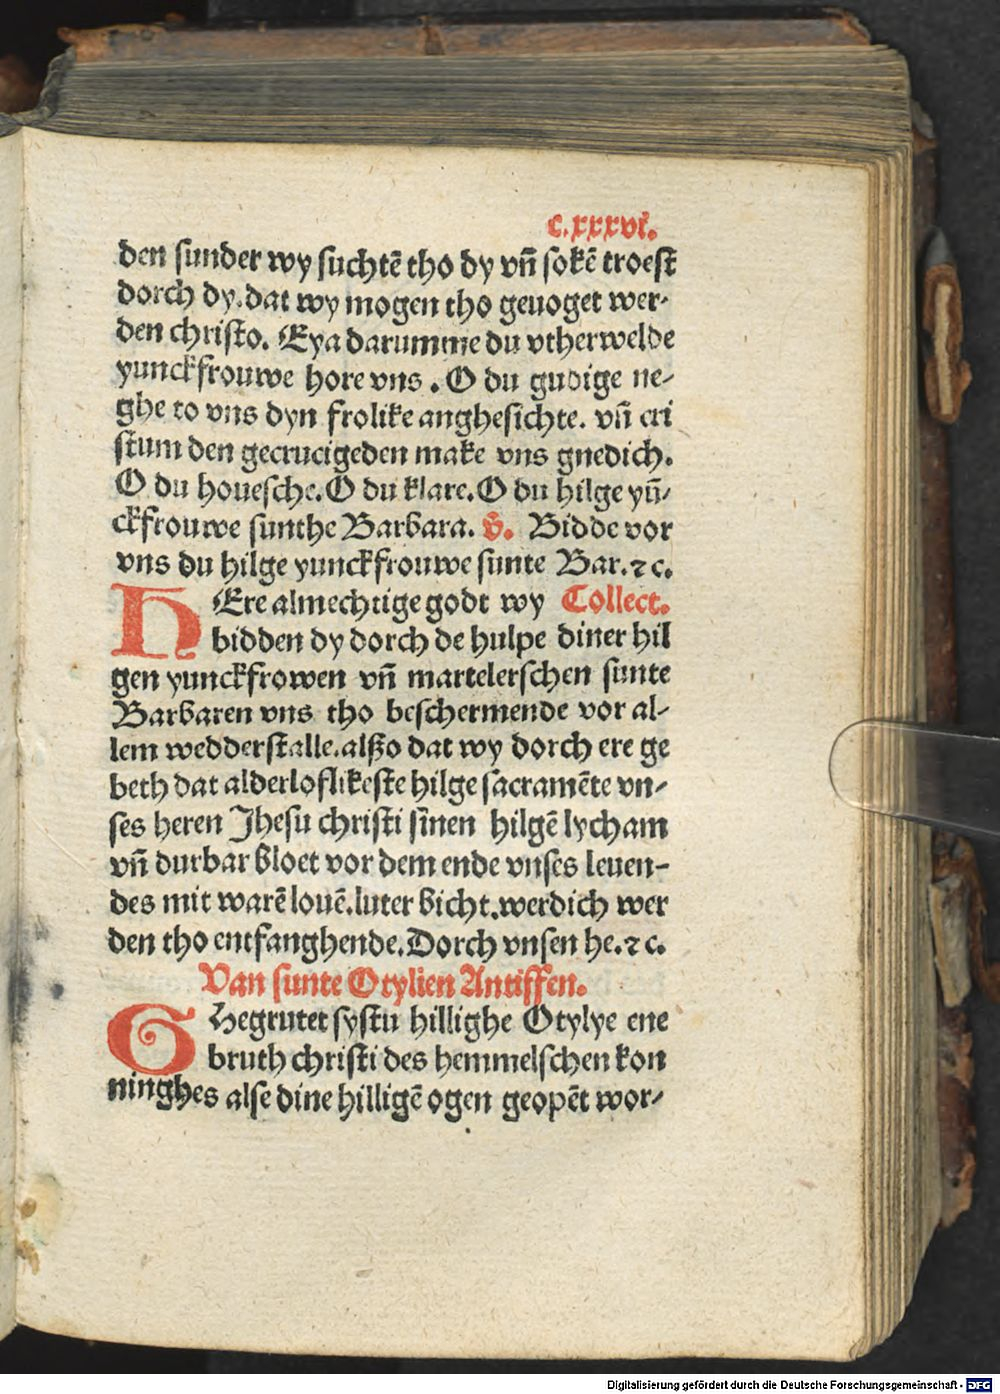 c.xxxvi.
den sunder wy suchtē tho dy vñ sokē troest
dorch dy.dat wy mogen tho geuoget wer-
den christo. Eya darumme du vtherwelde
yunckfrouwe hore vns . O du gudige ne-
ghe to vns dyn frolike anghesichte. vñ cri
stum den gecrucigeden make vns gnedich.
O du houesche.O du klare.O du hilge yū-
ckfrouwe sunthe Barbara. V. Bidde vor
vns du hilge yunckfrouwe sunte Bar. ⁊c.
HEre almechtige godt wy Collect.
bidden dy dorch de hulpe diner hil
gen yunckfrowen vñ martelerschen sunte
Barbaren vns tho beschermende vor al-
lem wedderstalle.alßo dat wy dorch ere ge
beth dat alderloflikeste hilge sacramēte vn-
ses heren Jhesu christi sinen hilgē lycham
vñ durbar bloet vor dem ende vnses leuen-
des mit warē louē.luter bicht.werdich wer
den tho entfanghende.Dorch vnsen he.⁊c.
Van sunte Otylien Antiffen.
GHegrutet systu hillighe Otylye ene
bruth christi des hemmelschen kon
ninghes alse dine hilligē ogen geopēt wor-
Digitalisierung gefördert durch die Deutsche Forschungsgemeinschaft - DFG